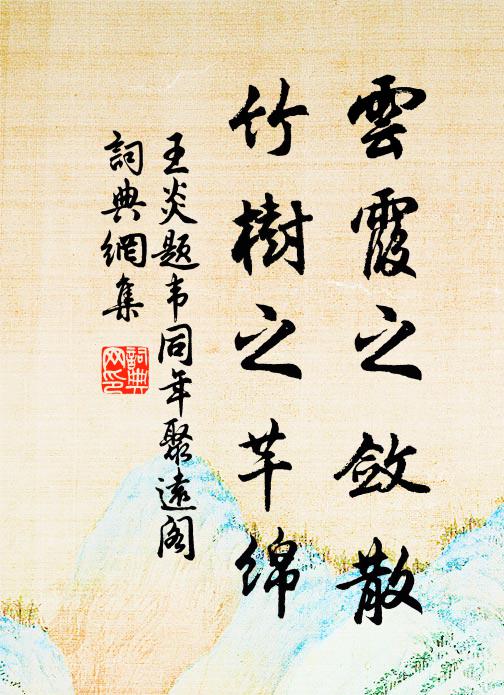 雲霞之斂散
竹樹之芊綿
王炎题韦同年聚遠阁
詞典網集
詞典網印